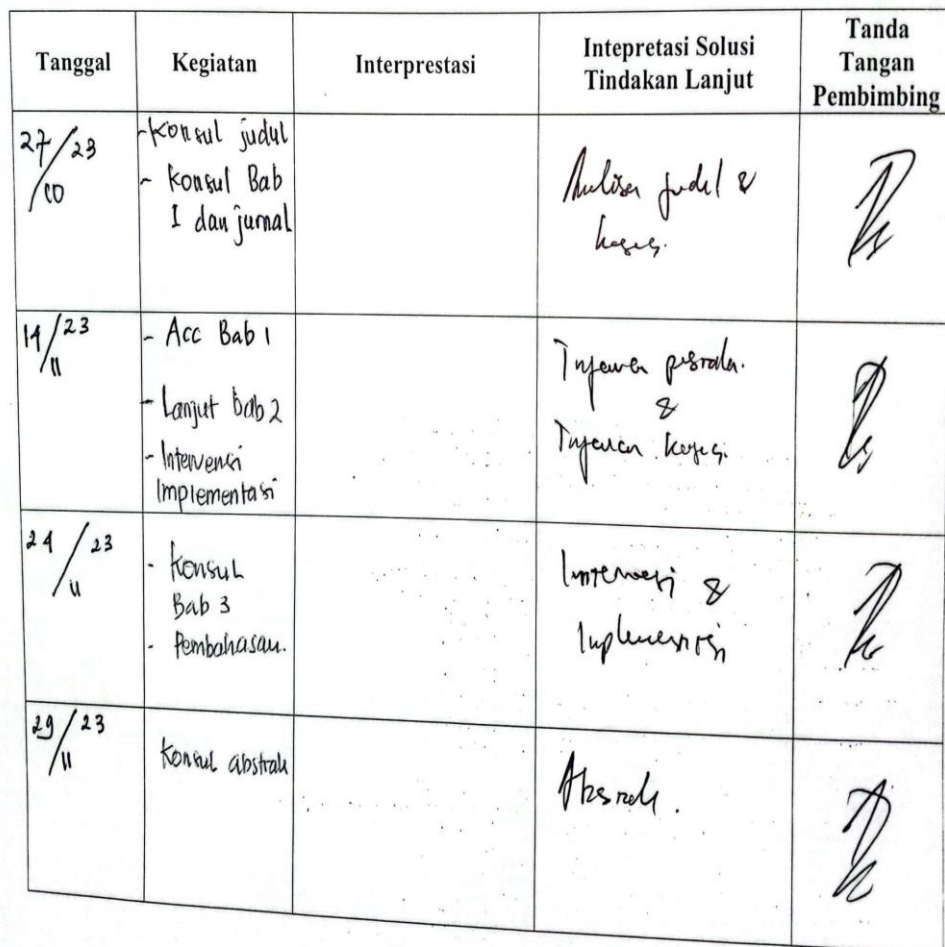 Tanggal
Kegiatan
Interprestasi
Intepretasi Solusi
Tindakan Lanjut
Tanda
Tangan
Pembimbing
27/23
/10
- Konsul judul
- Konsul Bab
I dan jurnal
Analisa judul &
kasus.
14/23
/11
- Acc Bab 1
- Lanjut bab 2
- Intervensi
Implementasi
Tinjauan
&
Tinjauan kasus.
24/23
/11
- Konsul
Bab 3
- Pembahasan.
Intervensi &
Implementasi
29/23
/11
Konsul abstrak
Abstrak.